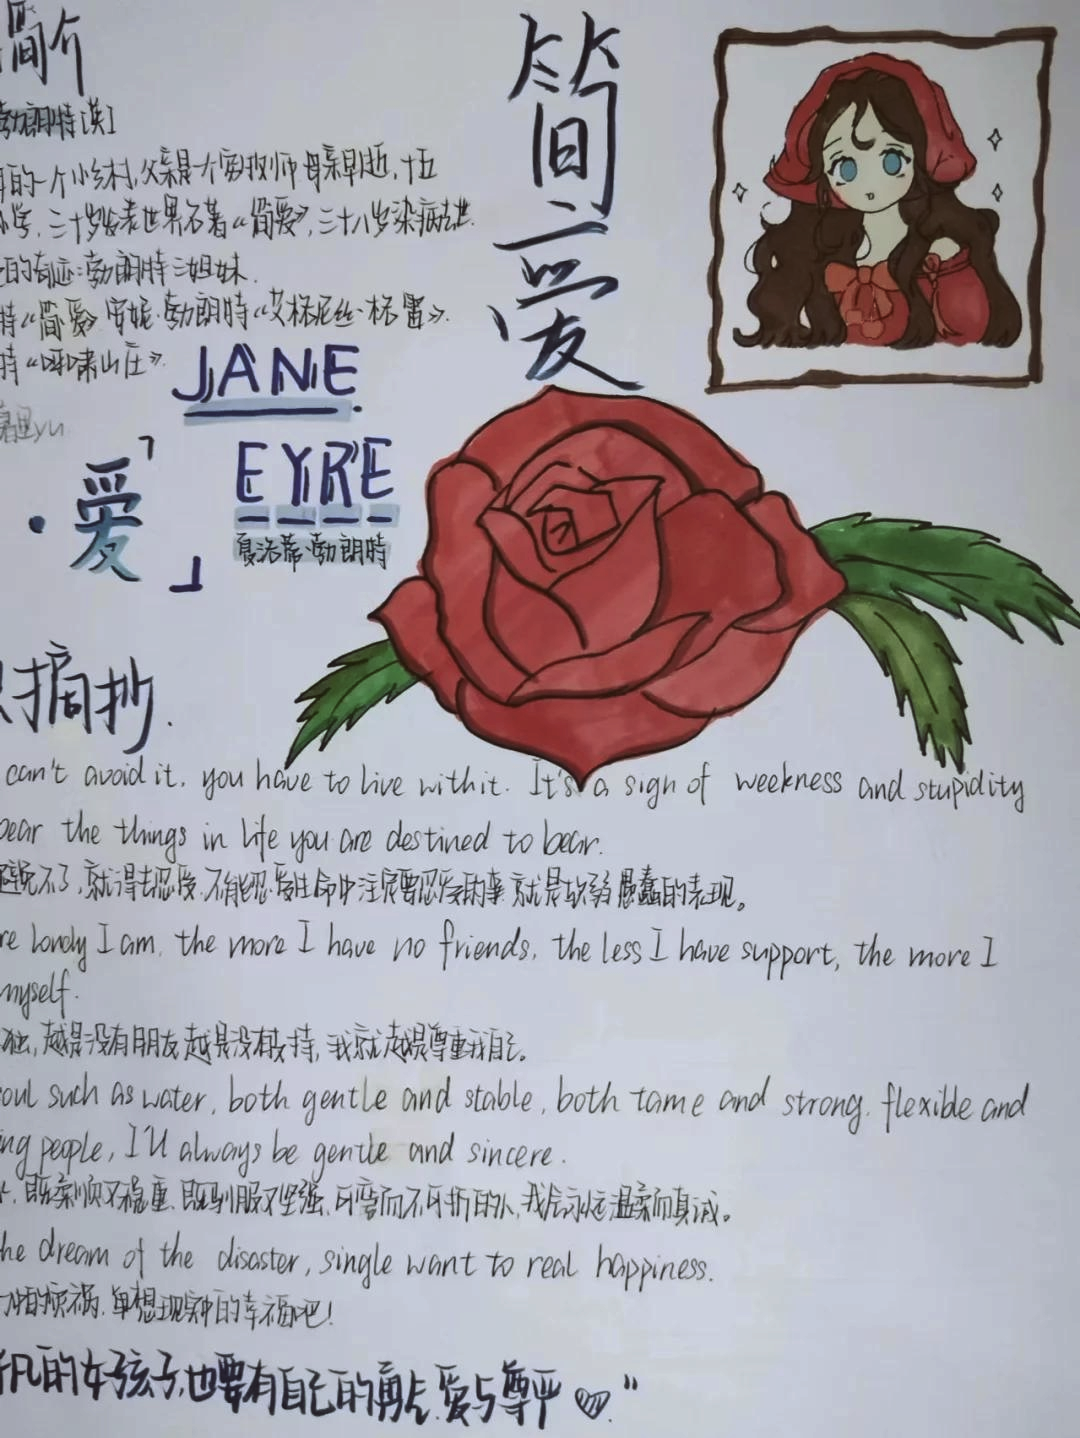 简介
勃朗特[英]
的一个小乡村,父亲是一个穷牧师 母亲早逝,十五
小学,三十岁发表世界名著《简爱》,三十八岁染病去世.
的奇迹:勃朗特三姐妹.
特《简·爱》 安妮·勃朗特《艾格尼丝·格雷》.
特《呼啸山庄》.
简爱
JANE
EYRE
夏洛蒂·勃朗特
·爱」
摘抄.
can't avoid it, you have to live with it. It's a sign of weekness and stupidity
bear the things in life you are destined to bear.
避免不了,就得去忍受,不能忍受生命中注定要忍受的事 就是软弱愚蠢的表现。
re lonely I am, the more I have no friends, the less I have support, the more I
myself.
独,越是没有朋友 越是没有支持,我就越是尊重我自己。
oul such as water, both gentle and stable, both tame and strong, flexible and
ing people, I'll always be gentle and sincere.
既柔顺又稳重,既驯服又坚强,可弯而不可折的人,我会永远温柔而真诚。
he dream of the disaster, single want to real happiness.
的烦祸,单想现实中的幸福吧!
凡的女孩子,也要有自己的勇气,爱与尊严♡."